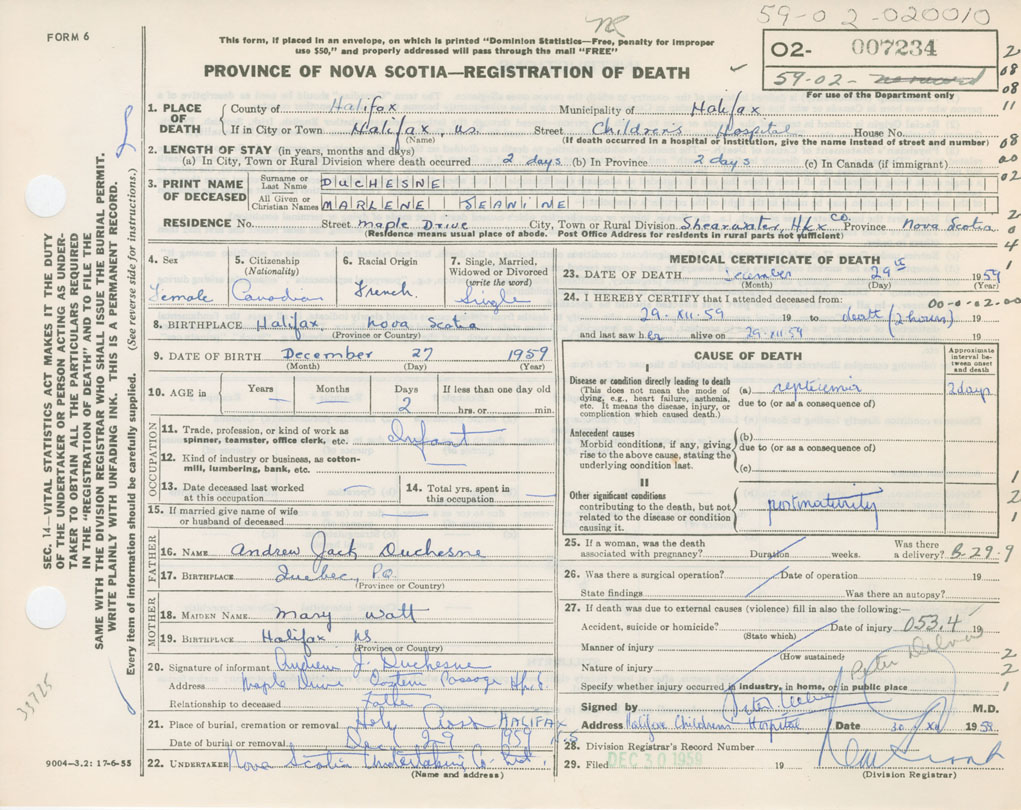 59-02-020010
FORM 6
This form, if placed in an envelope, on which is printed "Dominion Statistics—Free, penalty for improper
use $50," and properly addressed will pass through the mail "FREE"
02- 007234
59-02-
For use of the Department only
PROVINCE OF NOVA SCOTIA—REGISTRATION OF DEATH
SEC. 14—VITAL STATISTICS ACT MAKES IT THE DUTY
OF THE UNDERTAKER OR PERSON ACTING AS UNDER-
TAKER TO OBTAIN ALL THE PARTICULARS REQUIRED
IN THE "REGISTRATION OF DEATH" AND TO FILE THE
SAME WITH THE DIVISION REGISTRAR WHO SHALL ISSUE THE BURIAL PERMIT.
WRITE PLAINLY WITH UNFADING INK. THIS IS A PERMANENT RECORD.
Every item of information should be carefully supplied. (See reverse side for instructions.)
1. PLACE OF DEATH
County of Halifax Municipality of Halifax
If in City or Town Halifax, N.S. Street Children's Hospital House No.
(Name) (If death occurred in a hospital or institution, give the name instead of street and number)
2. LENGTH OF STAY (in years, months and days)
(a) In City, Town or Rural Division where death occurred 2 days (b) In Province 2 days (c) In Canada (if immigrant)
3. PRINT NAME OF DECEASED
Surname or Last Name DUCHESNE
All Given or Christian Names MARLENE JEANINE
RESIDENCE No. Street Maple Drive City, Town or Rural Division Shearwater, Hfx Co. Province Nova Scotia
(Residence means usual place of abode. Post Office Address for residents in rural parts not sufficient)
4. Sex Female
5. Citizenship (Nationality) Canadian
6. Racial Origin French
7. Single, Married, Widowed or Divorced (write the word) Single
8. BIRTHPLACE Halifax Nova Scotia
(Province or Country)
9. DATE OF BIRTH December 27 1959
(Month) (Day) (Year)
10. AGE in Years — Months — Days 2 If less than one day old
hrs. or min.
OCCUPATION
11. Trade, profession, or kind of work as
spinner, teamster, office clerk, etc. Infant
12. Kind of industry or business, as cotton-
mill, lumbering, bank, etc. —
13. Date deceased last worked
at this occupation —
14. Total yrs. spent in
this occupation —
15. If married give name of wife
or husband of deceased —
FATHER
16. NAME Andrew Jack Duchesne
17. BIRTHPLACE Quebec, P.Q.
(Province or Country)
MOTHER
18. MAIDEN NAME Mary Watt
19. BIRTHPLACE Halifax NS.
(Province or Country)
20. Signature of informant Andrew J. Duchesne
Address Maple Drive Eastern Passage
Relationship to deceased Father
21. Place of burial, cremation or removal Holy Cross HALIFAX
Date of burial or removal Dec 29 1959 N.S
22. UNDERTAKER Nova Scotia Undertaking Co. Ltd.
(Name and address)
9004—3.2: 17-6-55
33725
MEDICAL CERTIFICATE OF DEATH
23. DATE OF DEATH December 29th 1959
(Month) (Day) (Year)
24. I HEREBY CERTIFY that I attended deceased from: 00-0-02-00
29. XII. 59 19 to death (2 hours) 19
and last saw her alive on 29. XII. 59 19
CAUSE OF DEATH
Approximate interval between onset and death
I
Disease or condition directly leading to death
(This does not mean the mode of
dying, e.g., heart failure, asthenia,
etc. It means the disease, injury, or
complication which caused death.)
(a) septicemia 2 days
due to (or as a consequence of)
Antecedent causes
Morbid conditions, if any, giving
rise to the above cause, stating the
underlying condition last.
(b)
due to (or as a consequence of)
(c)
II
Other significant conditions
contributing to the death, but not
related to the disease or condition
causing it.
postmaturity
25. If a woman, was the death
associated with pregnancy? Duration weeks. Was there
a delivery? B-29-9
26. Was there a surgical operation? Date of operation 19
State findings Was there an autopsy?
27. If death was due to external causes (violence) fill in also the following:—
Accident, suicide or homicide? Date of injury 053.4 19
(State which)
Manner of injury
(How sustained)
Nature of injury
Specify whether injury occurred in industry, in home, or in public place
Signed by M.D.
Address Halifax Children's Hospital Date 30 XII 1959
28. Division Registrar's Record Number
29. Filed DEC 30 1959 19
(Division Registrar)